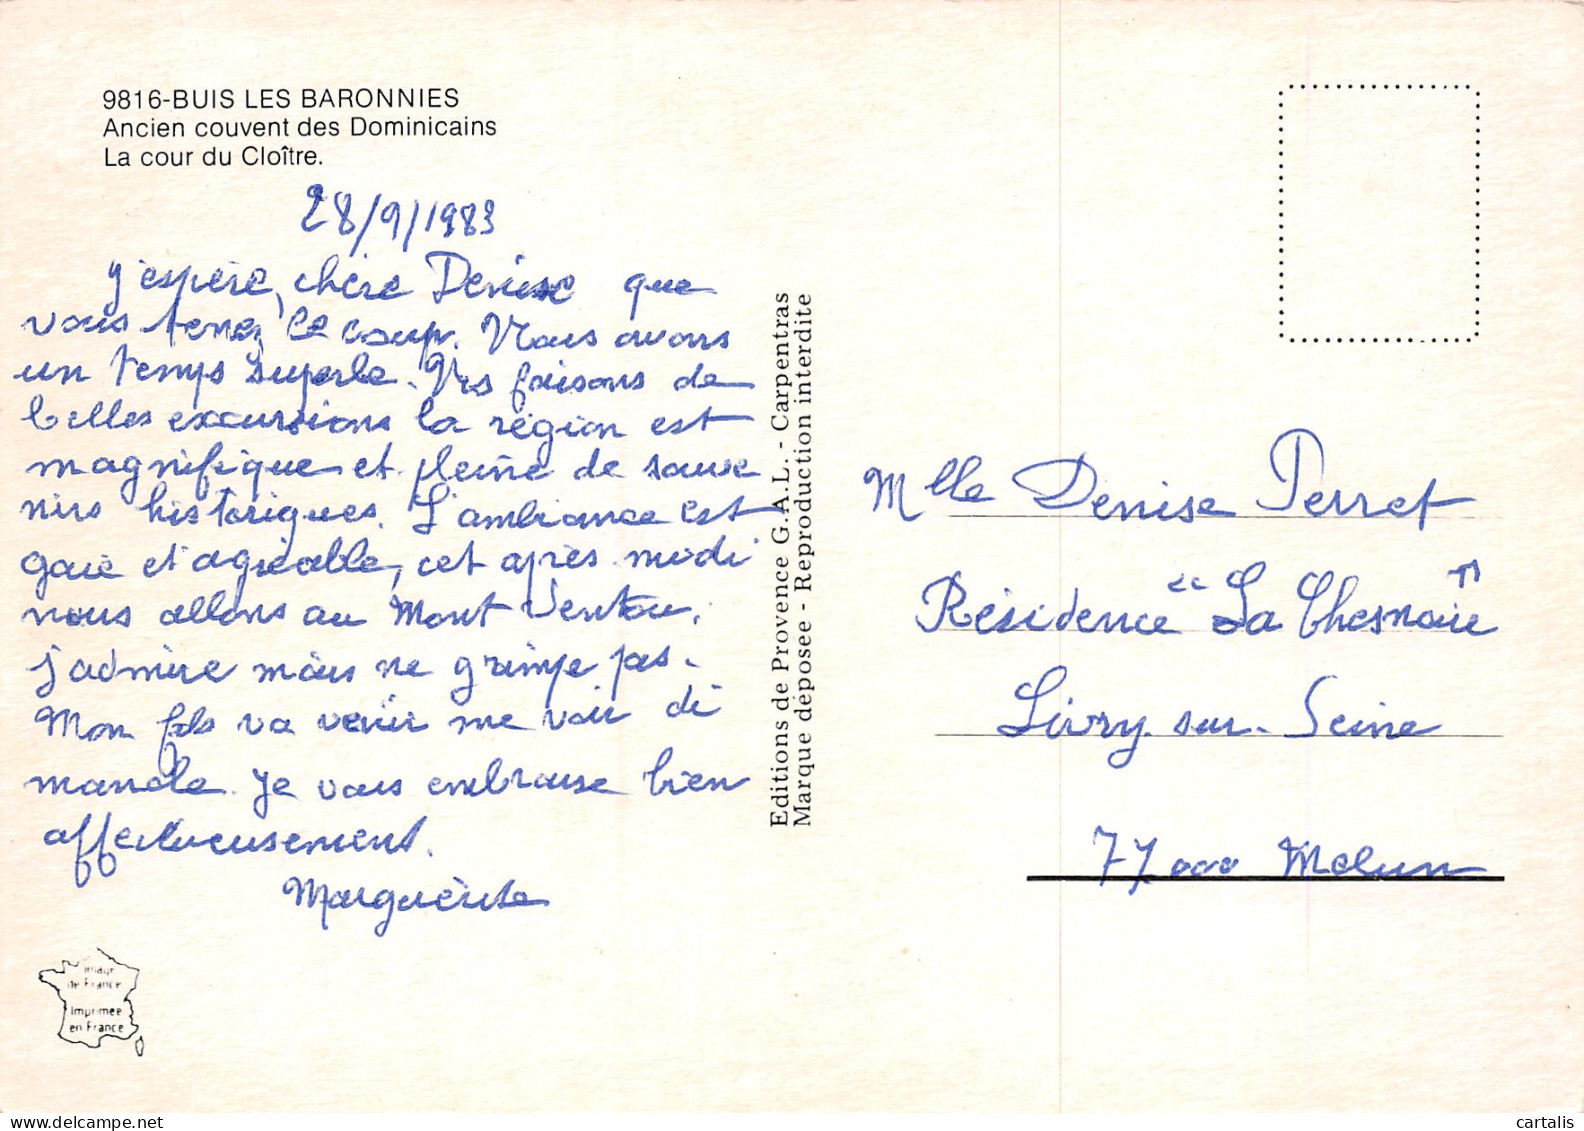 9816-BUIS LES BARONNIES
Ancien couvent des Dominicains
La cour du Cloître.
28/9/1983
J'espère, chère Denise que
vous tenez le coup. Nous avons
un temps superbe. Ns faisons de
belles excursions la région est
magnifique et pleine de souve
nirs historiques. L'ambiance est
gaie et agréable, cet après midi
nous allons au Mont Ventou.
j'admire mais ne grimpe pas.
Mon fils va venir me voir di
manche. Je vous embrasse bien
affectueusement.
Marguerite
Editions de Provence G.A.L. - Carpentras
Marque déposée - Reproduction interdite
Mlle Denise Perret
Résidence "La Chesnaie"
Livry sur Seine
77000 Melun
Image
de France
Imprimée
en France
cartalis